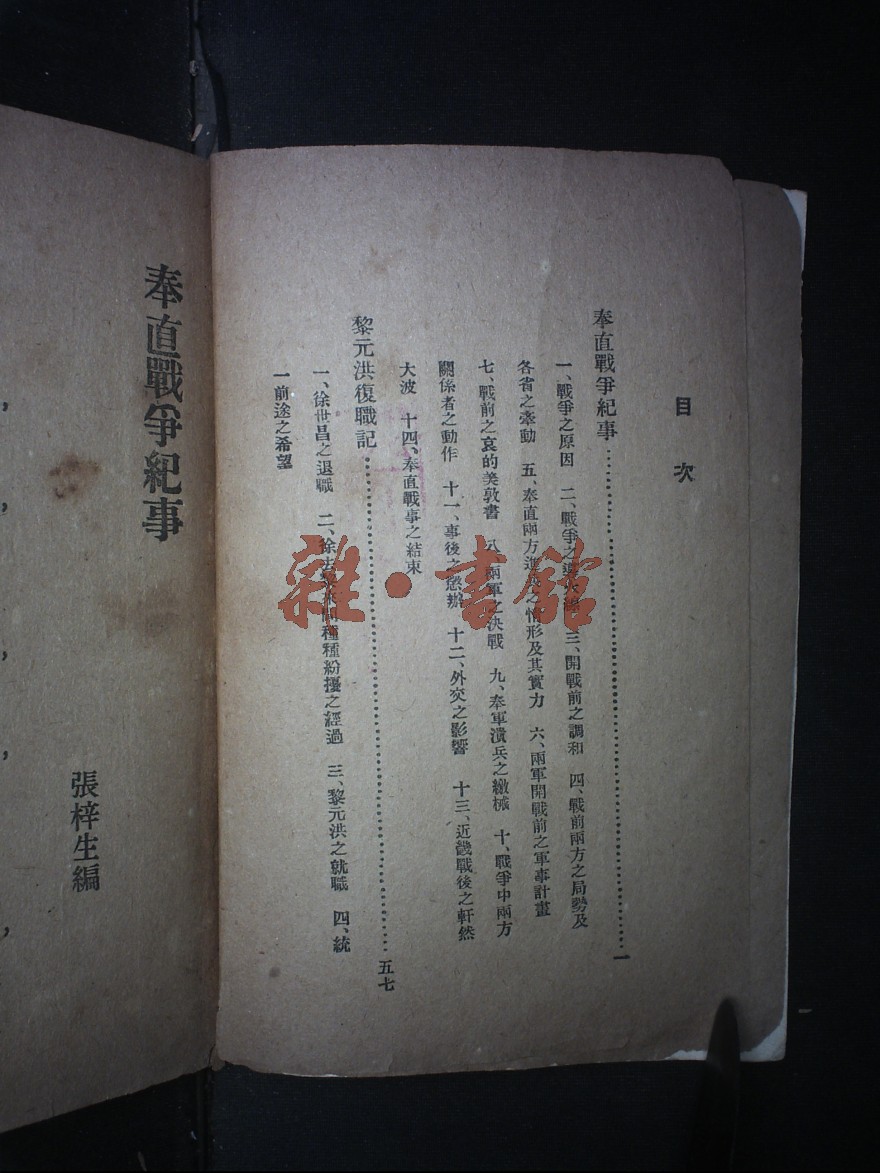 目次
奉直戰爭紀事 一
一、戰爭之原因 二、戰爭之 三、開戰前之調和 四、戰前兩方之局勢及
各省之牽動 五、奉直兩方進 之情形及其實力 六、兩軍開戰前之軍事計畫
七、戰前之哀的美敦書 八、兩軍之決戰 九、奉軍潰兵之繳械 十、戰爭中兩方
關係者之動作 十一、事後之懲辦 十二、外交之影響 十三、近畿戰後之軒然
大波 十四、奉直戰事之結束
黎元洪復職記 五七
一、徐世昌之退職 二、徐去 種種紛擾之經過 三、黎元洪之就職 四、統
一前途之希望
奉直戰爭紀事
張梓生編
雜·書館